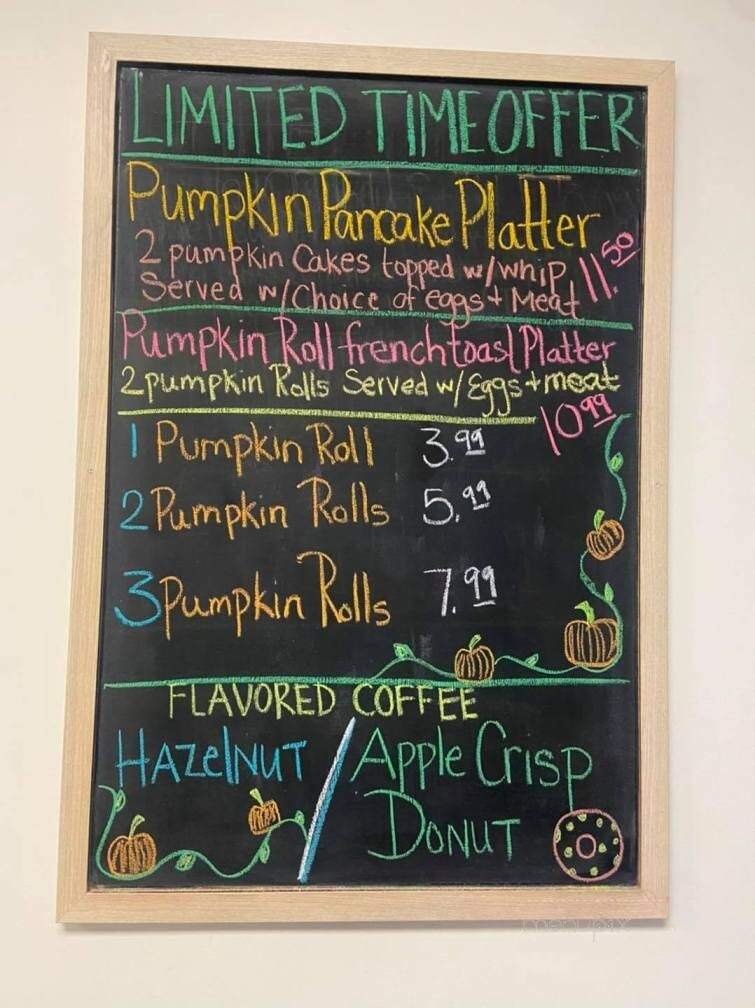 LIMITED TIME OFFER
Pumpkin Pancake Platter
2 pumpkin Cakes topped w/whip
Served w/Choice of eggs + Meat 11.50
Pumpkin Roll french toast Platter
2 pumpkin Rolls Served w/ Eggs + meat
10.99
1 Pumpkin Roll 3.99
2 Pumpkin Rolls 5.99
3 Pumpkin Rolls 7.99
FLAVORED COFFEE
HAZelNUT / Apple Crisp
DONUT